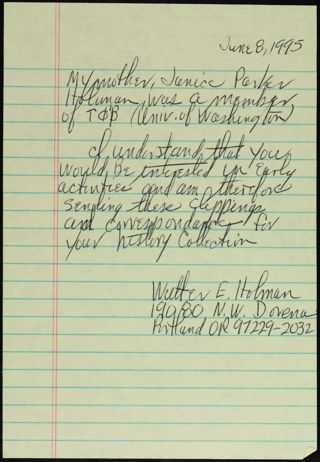 June 8, 1995
My mother, Janice Parker
Holman, was a member
of TΦB (Univ. of Washington)
I understand that you
would be interested in early
activities and am therefore
sending these clippings
and correspondance for
your history collection
Walter E. Holman
19080 N.W. Dorena
Portland OR 97229-2032